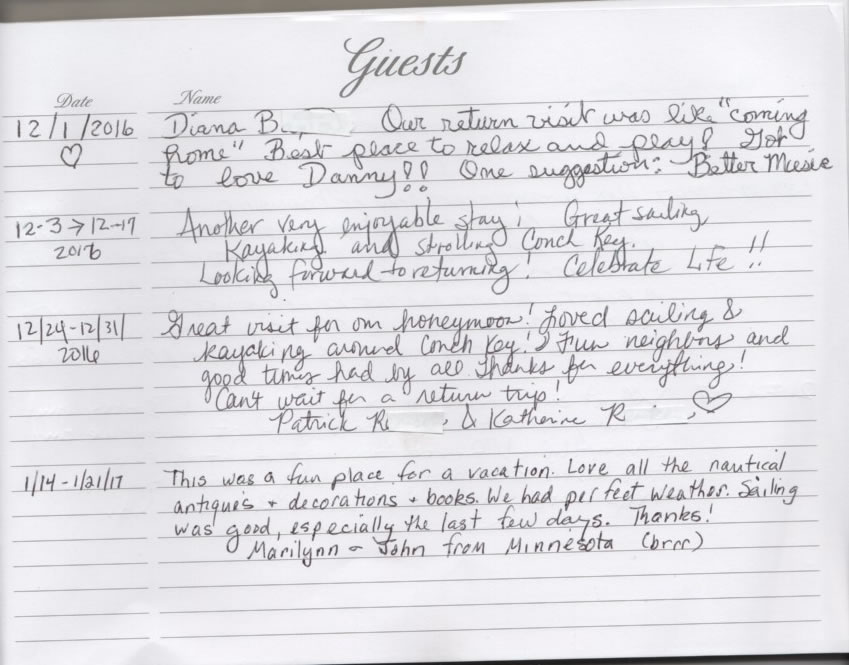 Guests
Date Name
12/1/2016 Diana B. Our return visit was like "coming
♡ home" Best place to relax and play! Got
to love Danny!! One suggestion: Better Music
12-3 → 12-17 Another very enjoyable stay! Great sailing,
2016 Kayaking and strolling Conch Key.
Looking forward to returning! Celebrate Life!!
12/24-12/31/ Great visit for our honeymoon! Loved sailing &
2016 kayaking around Conch Key! Fun neighbors and
good times had by all. Thanks for everything!
Can't wait for a return trip!
Patrick R. & Katherine R. ♡
1/14-1/21/17 This was a fun place for a vacation. Love all the nautical
antiques + decorations + books. We had perfect weather. Sailing
was good, especially the last few days. Thanks!
Marilynn & John from Minnesota (brrr)